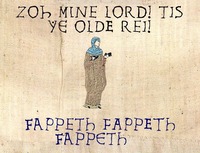 ZOh MINE LORD! TIS
YE OLDE REI!
FAPPETh FAPPETh
FAPPETh